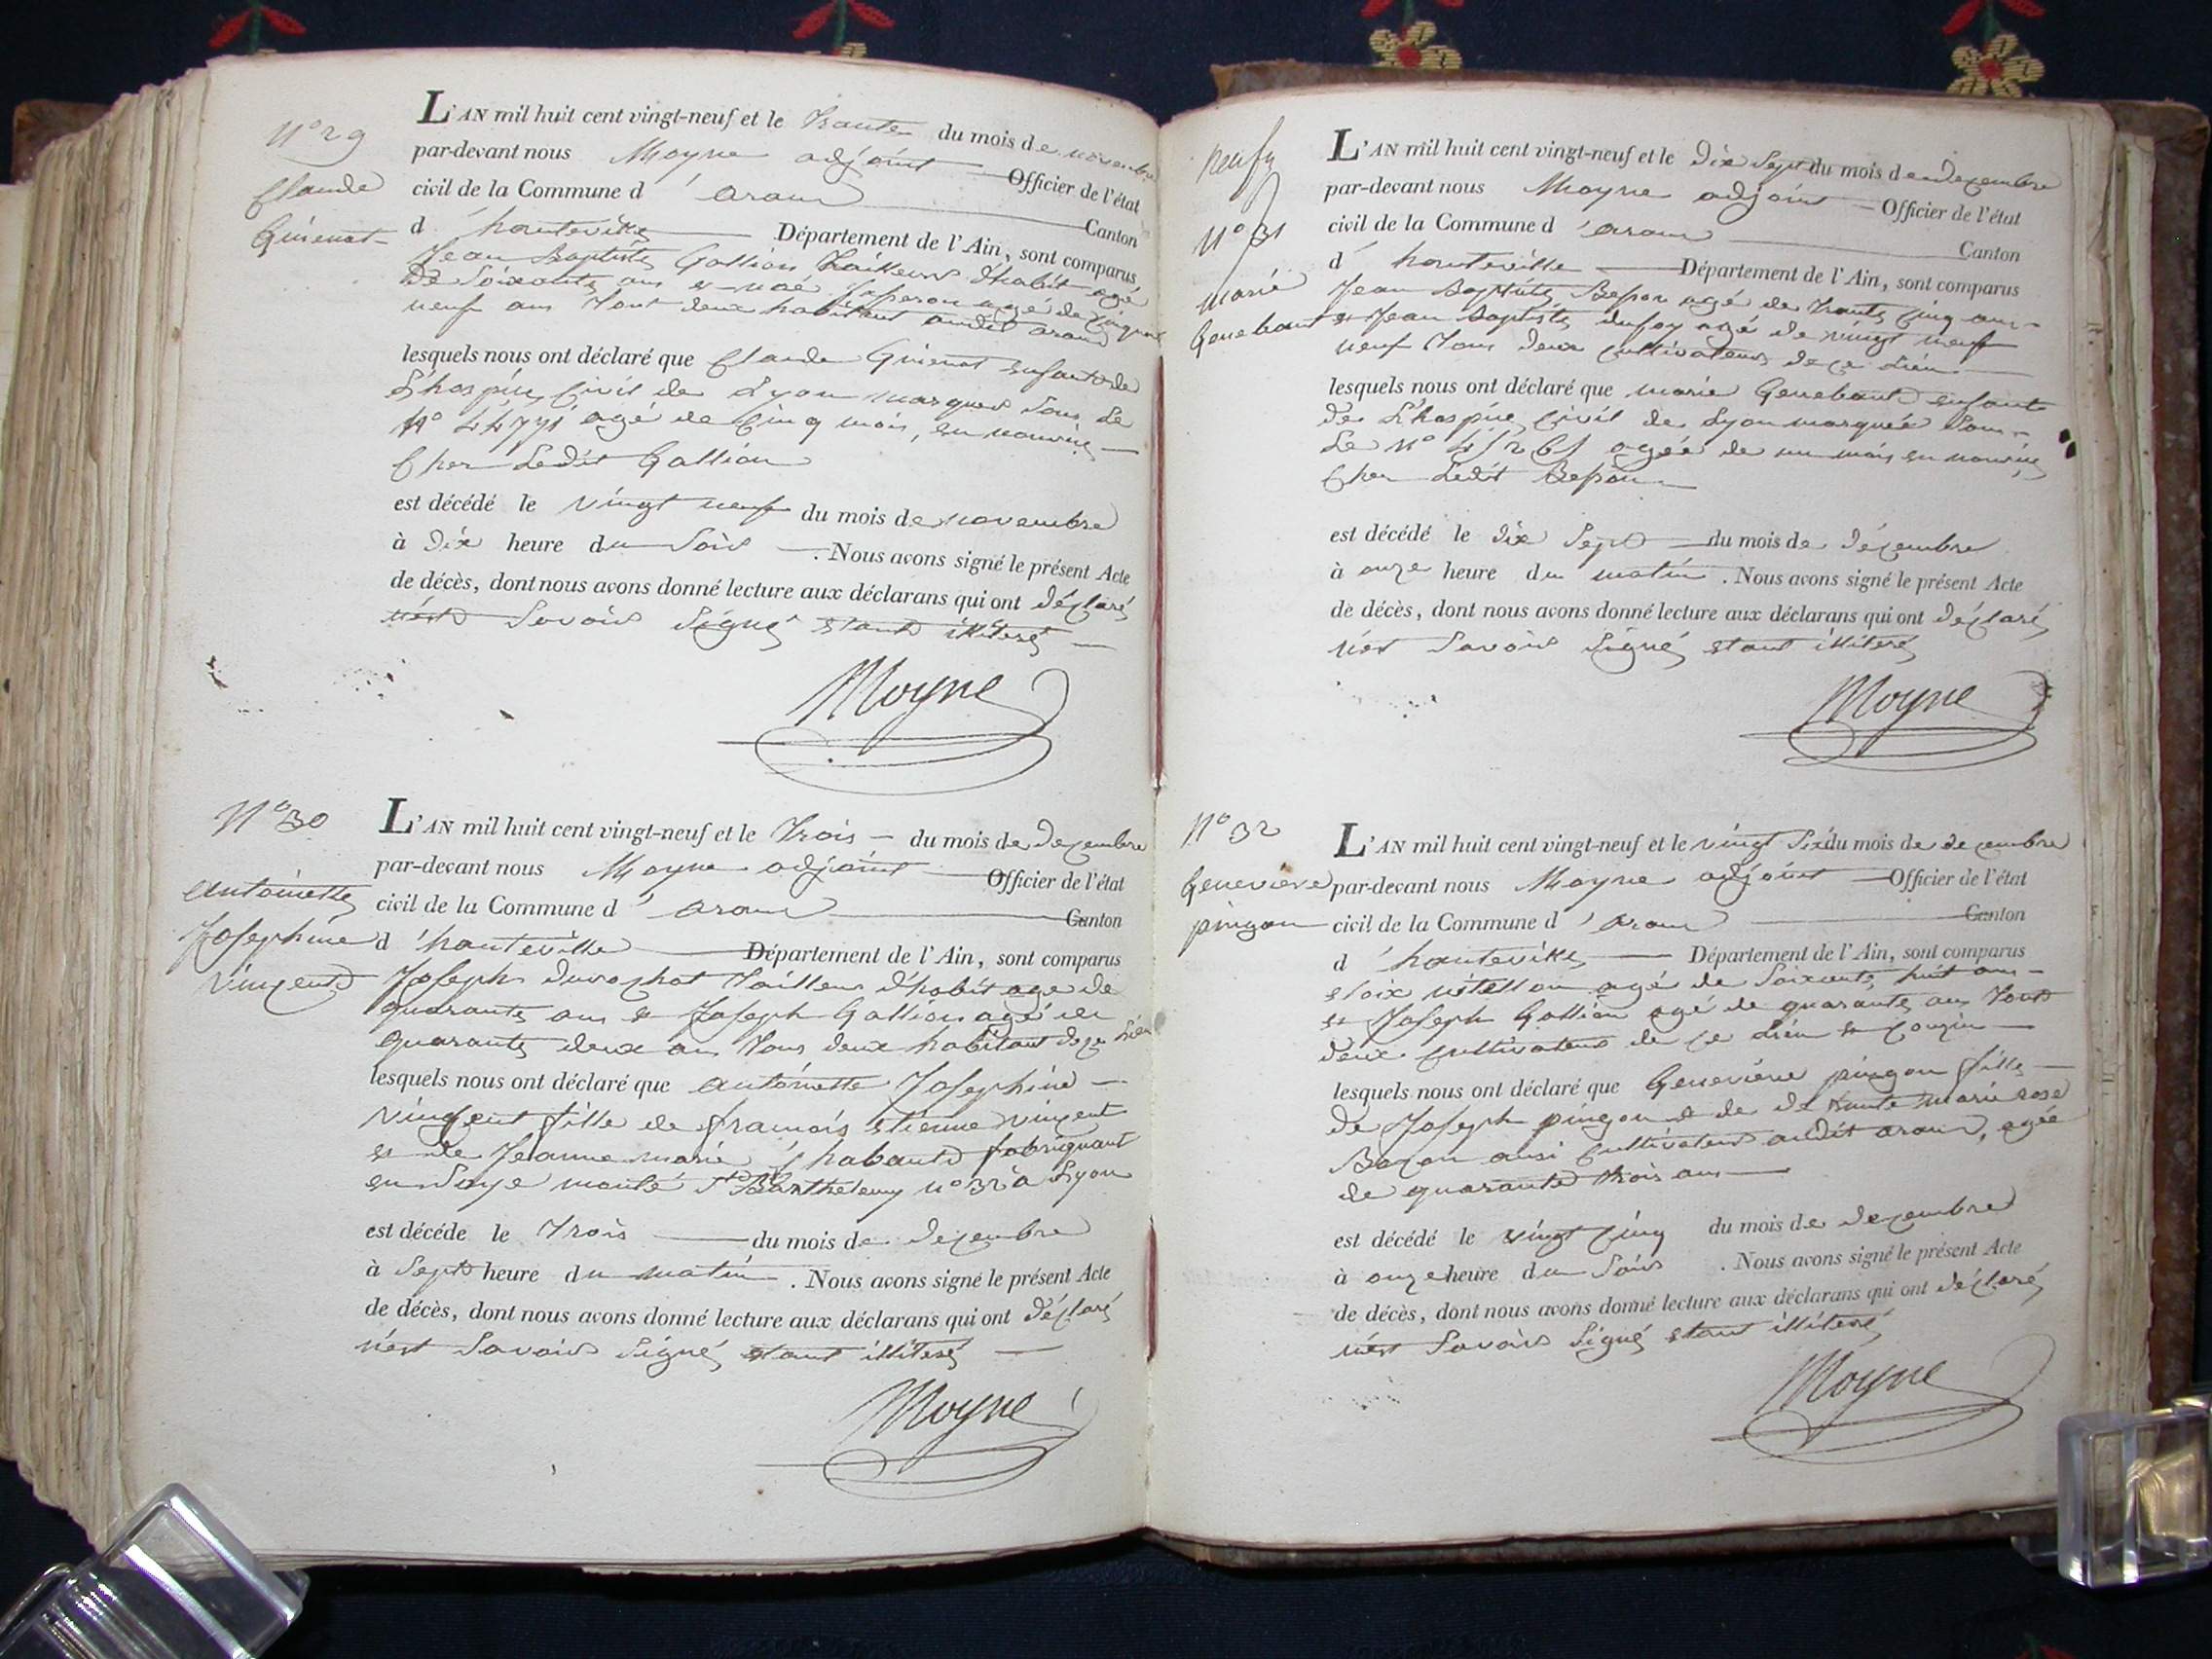 N° 29
Claude
Guienat
L'AN mil huit cent vingt-neuf et le trante du mois de novembre
par-devant nous Moyne adjoint Officier de l'état
civil de la Commune d'aran Canton
d'hauteville Département de l'Ain, sont comparus
Jean Baptiste Gallion tailleur d'habit agé
de Soixante ans et agé de cinquante
neuf ans tout deux habitant audit aran
lesquels nous ont déclaré que Claude Guienat enfant de
L'hospice Civil de Lyon marqué Sous Le
N° 44771 agé de Cinq mois, en nourrice
Chez Ledit Gallion
est décédé le vingt neuf du mois de novembre
à dix heure du Soir . Nous avons signé le présent Acte
de décès, dont nous avons donné lecture aux déclarans qui ont déclaré
Savoir Signé etant illiteré
Moyne
N° 30
antoinette
Josephine
Vinçent
L'AN mil huit cent vingt-neuf et le trois du mois de decembre
par-devant nous Moyne adjoint Officier de l'état
civil de la Commune d'aran Canton
d'hauteville Département de l'Ain, sont comparus
Joseph durochat tailleur d'habit age de
quarante ans et Joseph Gallion agé de
quarante deux an tous deux habitant de ce Lieu
lesquels nous ont déclaré que antoinette Josephine
vinçent fille de francois etienne vinçent
et de Jeanne marie Chabaud fabriquant
en Soye monté St Barthelemy n° 32 a Lyon
est décéde le trois du mois de decembre
à Sept heure du matin . Nous avons signé le présent Acte
de décès, dont nous avons donné lecture aux déclarans qui ont déclaré
Savoir Signé etant illiteré
Moyne
N° 31
marie
Genebaud
L'AN mil huit cent vingt-neuf et le dix Sept du mois de decembre
par-devant nous Moyne adjoint Officier de l'état
civil de la Commune d'aran Canton
d'hauteville Département de l'Ain, sont comparus
Jean Baptiste Besson agé de trante cinq ans
et Jean Baptiste dufay agé de vingt neuf
neuf tous deux cultivateurs de ce Lieu
lesquels nous ont déclaré que marie Genebaud enfant
de L'hospice Civil de Lyon marquée Sous
Le N° 45261 agée de un mois en nourrice
Chez Ledit Besson
est décédé le dix Sept du mois de décembre
à onze heure du matin . Nous avons signé le présent Acte
de décès, dont nous avons donné lecture aux déclarans qui ont déclaré
Savoir Signé etant illiteré
Moyne
N° 32
Genevieve
pingon
L'AN mil huit cent vingt-neuf et le vingt Six du mois de decembre
par-devant nous Moyne adjoint Officier de l'état
civil de la Commune d'aran Canton
d'hauteville Département de l'Ain, sont comparus
agé de Soixante huit ans
et Joseph Gallion agé de quarante ans tout
deux cultivateur de ce Lieu et couzin
lesquels nous ont déclaré que Genevieve pingon fille
de Joseph pingon et de marie rose
Bozon ausi cultivateur audit aran, agée
de quarante trois ans
est décédé le vingt cinq du mois de decembre
à onze heure du Soir . Nous avons signé le présent Acte
de décès, dont nous avons donné lecture aux déclarans qui ont déclaré
Savoir Signé etant illiteré
Moyne